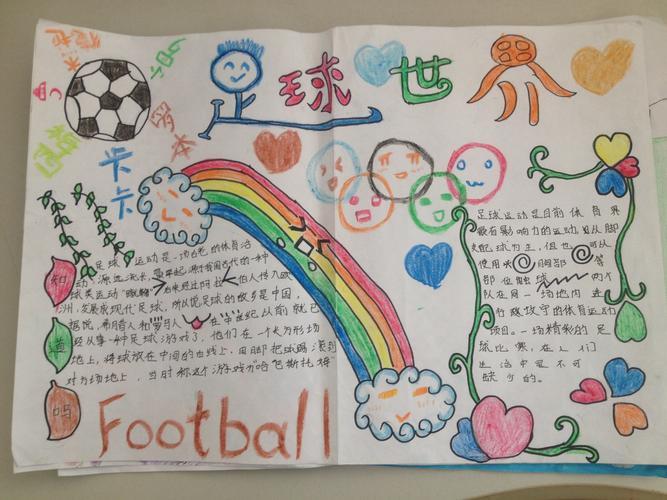 足球世界
卡卡
罗本
知道吗
足球运动是一场古老的体育活
动,源远流长,最早起源于我国古代的一种
球类运动"蹴鞠",后来经过阿拉伯人传入欧
洲,发展成现代足球。所以说足球的故乡是中国,
据说,希腊人和罗马人在中世纪以前就已
经从事一种足球游戏了,他们在一个长方形场
地上,将球放在中间的白线上,用脚把球踢滚到
对方场地上,当时称这个游戏为"哈巴斯托姆"
Football
足球运动是目前体育界
最有影响力的运动,以脚
支配球为主,但也可以
使用头 胸部等
部位触球 两个
队在同一场地内进
行进攻守的体育运动
项目。一场精彩的足
球比赛,在人们
生活中是不可
缺少的。